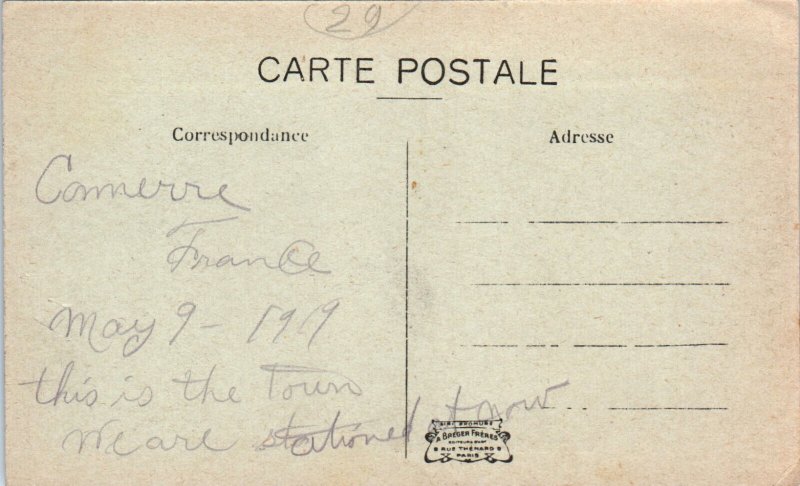 29
CARTE POSTALE
Correspondance
Adresse
Comerre
France
May 9 - 1919
this is the Town
we are stationed at now
A. BREGER FRÈRES
9 RUE THÉNARD 9
PARIS